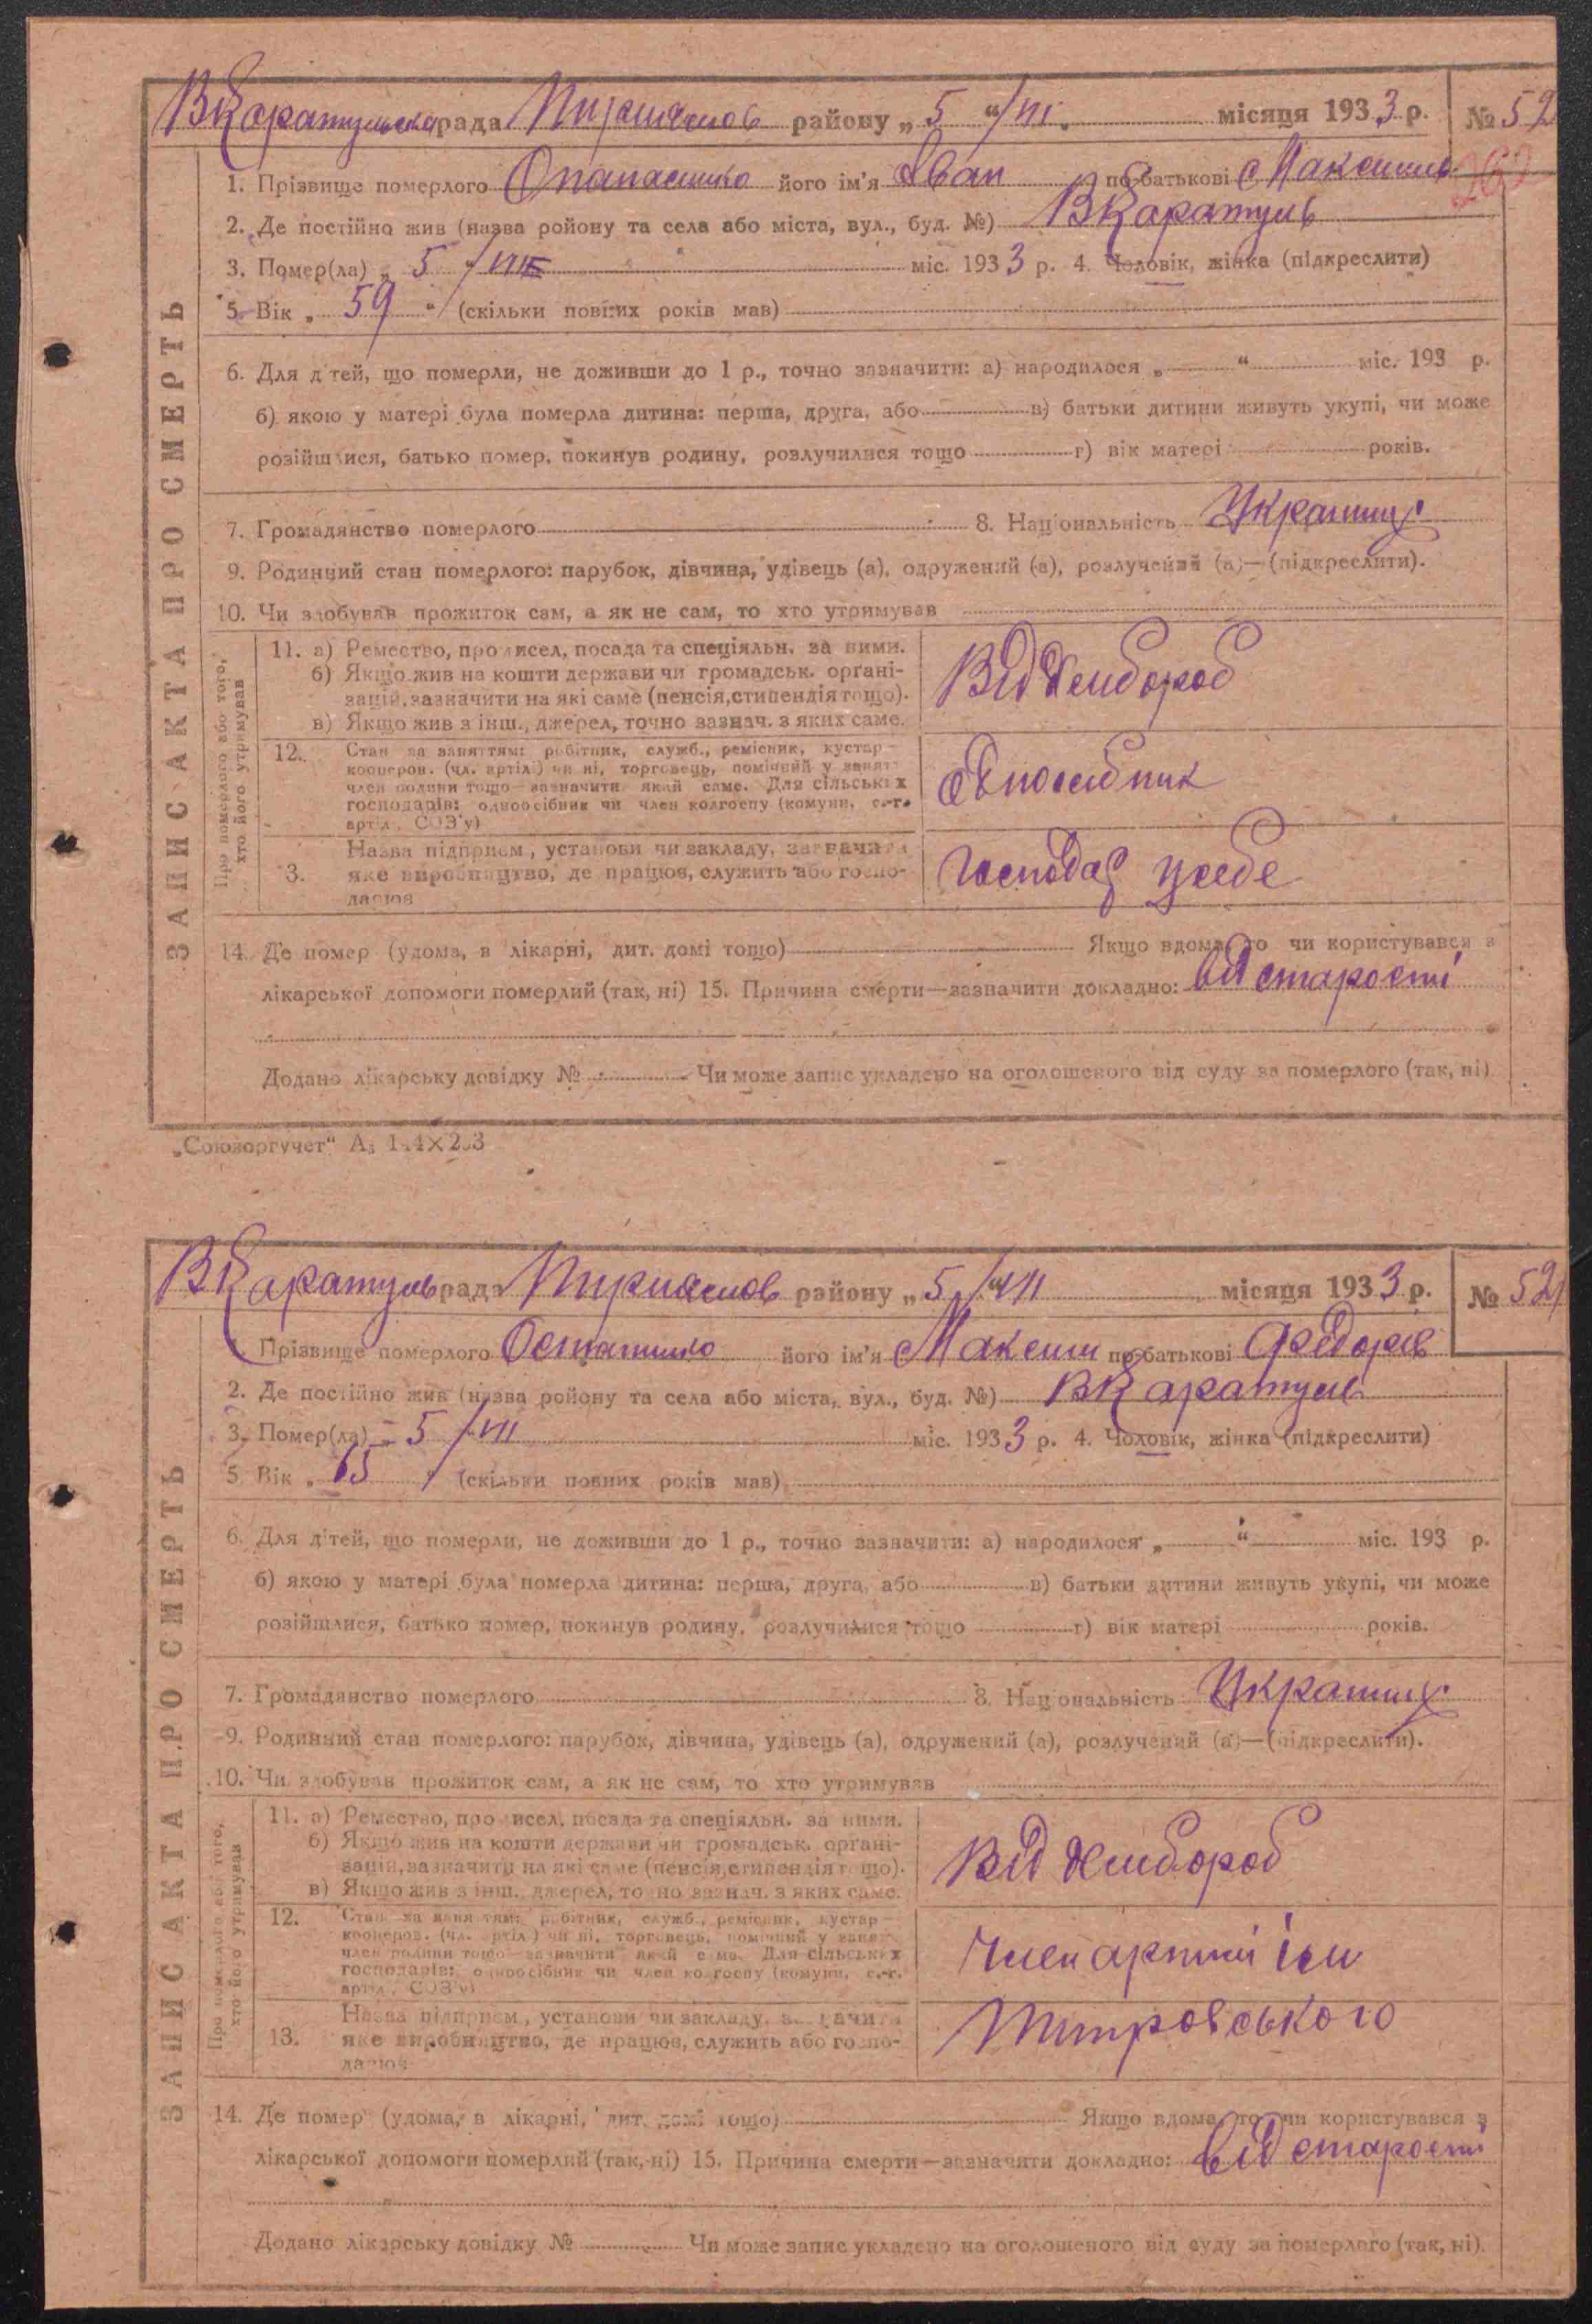 ВКаратульська рада Переяслов району „ 5 “/VII. місяця 1933 р. № 52
1. Прізвище померлого Опанасенко його ім'я Іван по батькові Максимів
2. Де постійно жив (назва ройону та села або міста, вул., буд. №) ВКаратуль
3. Помер(ла) „ 5 “/VII міс. 1933 р. 4. Чоловік, жінка (підкреслити)
5. Вік „ 59 “ (скільки повних років мав)
6. Для дітей, що померли, не доживши до 1 р., точно зазначити: а) народилося „ “ міс. 193 р.
б) якою у матері була померла дитина: перша, друга, або в) батьки дитини живуть укупі, чи може
розійшлися, батько помер, покинув родину, розлучилися тощо г) вік матері років.
7. Громадянство померлого 8. Національність Українец
9. Родинний стан померлого: парубок, дівчина, удівець (а), одружений (а), розлучений (а)—(підкреслити).
10. Чи здобував прожиток сам, а як не сам, то хто утримував
ЗАПИС АКТА ПРО СМЕРТЬ
Про померлого або того, хто його утримував
11. а) Ремество, промисел, посада та спеціяльн. за ними.
б) Якщо жив на кошти держави чи громадськ. органі-
зацій, зазначити на які саме (пенсія, стипендія тощо).
в) Якщо жив з інш., джерел, точно зазнач. з яких саме.
Від Хлибороб
12. Стан за заняттям: робітник, служб., ремісник, кустар—
кооперов. (чл. артілі) чи ні, торговець, помічний у занят.
член родини тощо—зазначити який саме. Для сільських
господарів: одноосібник чи член колгоспу (комуни, с.-г.
артіл, СОЗ'у)
одноосібник
13. Назва підприєм., установи чи закладу, зазначити
яке виробництво, де працює, служить або госпо-
дарює
Господар у себе
14. Де помер (удома, в лікарні, дит. домі тощо) Якщо вдома, то чи користувався з
лікарської допомоги померлий (так, ні) 15. Причина смерти—зазначити докладно: від старости
Додано лікарську довідку № Чи може запис укладено на оголошеного від суду за померлого (так, ні)
„Союзоргучет“ А₅
ВКаратуль рада Переяслов району „ 5 “/VII місяця 1933 р. № 521
Прізвище померлого Остапенко його ім'я Максим по батькові Федорів
2. Де постійно жив (назва ройону та села або міста, вул., буд. №) ВКаратуль
3. Помер(ла) 5 /VII міс. 1933 р. 4. Чоловік, жінка (підкреслити)
5. Вік „ 65 “ (скільки повних років мав)
6. Для дітей, що померли, не доживши до 1 р., точно зазначити: а) народилося „ “ міс. 193 р.
б) якою у матері була померла дитина: перша, друга, або в) батьки дитини живуть укупі, чи може
розійшлися, батько помер, покинув родину, розлучилися тощо г) вік матері років.
7. Громадянство померлого 8. Національність Українец
9. Родинний стан померлого: парубок, дівчина, удівець (а), одружений (а), розлучений (а)—(підкреслити).
10. Чи здобував прожиток сам, а як не сам, то хто утримував
ЗАПИС АКТА ПРО СМЕРТЬ
Про померлого або того, хто його утримував
11. а) Ремество, промисел, посада та спеціяльн. за ними.
б) Якщо жив на кошти держави чи громадськ. органі-
зацій, зазначити на які саме (пенсія, стипендія тощо).
в) Якщо жив з інш., джерел, точно зазнач. з яких саме.
Від Хлибороб
12. Стан за заняттям: робітник, служб., ремісник, кустар—
кооперов. (чл. артіл.) чи ні, торговець, помічний у занят.
член родини тощо—зазначити який саме. Для сільських
господарів: одноосібник чи член колгоспу (комуни, с.-г.
артіл, СОЗ'у)
Член артилі ім
13. Назва підприєм., установи чи закладу, зазначити
яке виробництво, де працює, служить або госпо-
дарює
Питровського
14. Де помер (удома, в лікарні, дит. домі тощо) Якщо вдома, то чи користувався з
лікарської допомоги померлий (так, ні) 15. Причина смерти—зазначити докладно: від старости
Додано лікарську довідку № Чи може запис укладено на оголошеного від суду за померлого (так, ні).